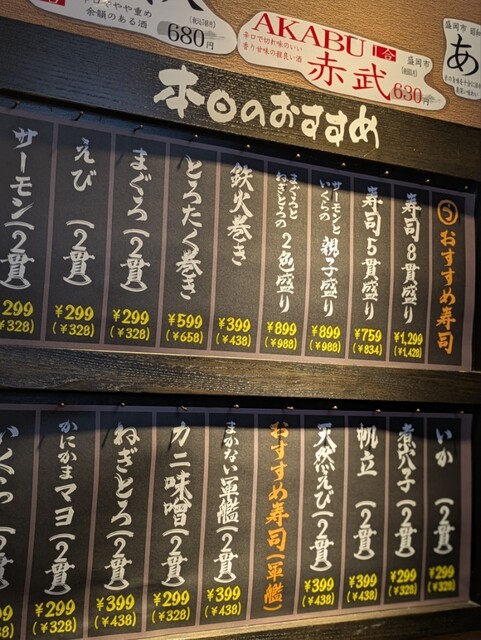 辛口でやや重め
余韻のある酒
(税込748円)
680円
AKABU 一合
辛口で切れ味のいい
香り甘味の程良い酒
赤武
盛岡市
630円
盛岡市
あ
本日のおすすめ
おすすめ寿司
寿司8貫盛り
¥1,299
(¥1,428)
寿司5貫盛り
¥759
(¥834)
サーモンと
いくらの
親子盛り
¥899
(¥988)
まぐろと
ねぎとろの
2色盛り
¥899
(¥988)
鉄火巻き
¥399
(¥438)
とろたく巻き
¥599
(¥658)
まぐろ(2貫)
¥299
(¥328)
えび(2貫)
¥299
(¥328)
サーモン(2貫)
299
¥328)
いか(2貫)
¥299
(¥328)
煮穴子(2貫)
¥299
(¥328)
帆立(2貫)
¥399
(¥438)
天然えび(2貫)
¥399
(¥438)
おすすめ寿司(軍艦)
まかない軍艦(2貫)
¥399
(¥438)
カニ味噌(2貫)
¥299
(¥328)
ねぎとろ(2貫)
¥399
(¥438)
かにかまマヨ(2貫)
¥299
(¥328)
いくら(2貫)